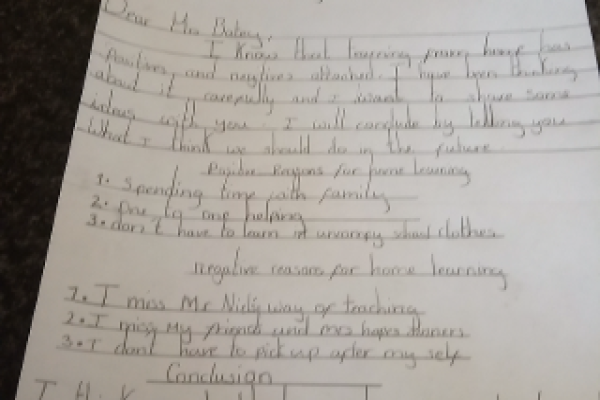 Dear Mrs
I know that learning from home has
Positives and negtives attached. I have been thinking
about it carefully and I want to share some
ideas with you. I will conclude by telling you
what I think we should do in the future
Positive Reasons for home learning
1. Spending time with family
2. one to one helping
3. don't have to learn in school clothes
negative reasons for home learning
1. I miss Mr way of teaching
2. I miss my friends and mrs
3. I don't have to pick up after my self
Conclusion
I think